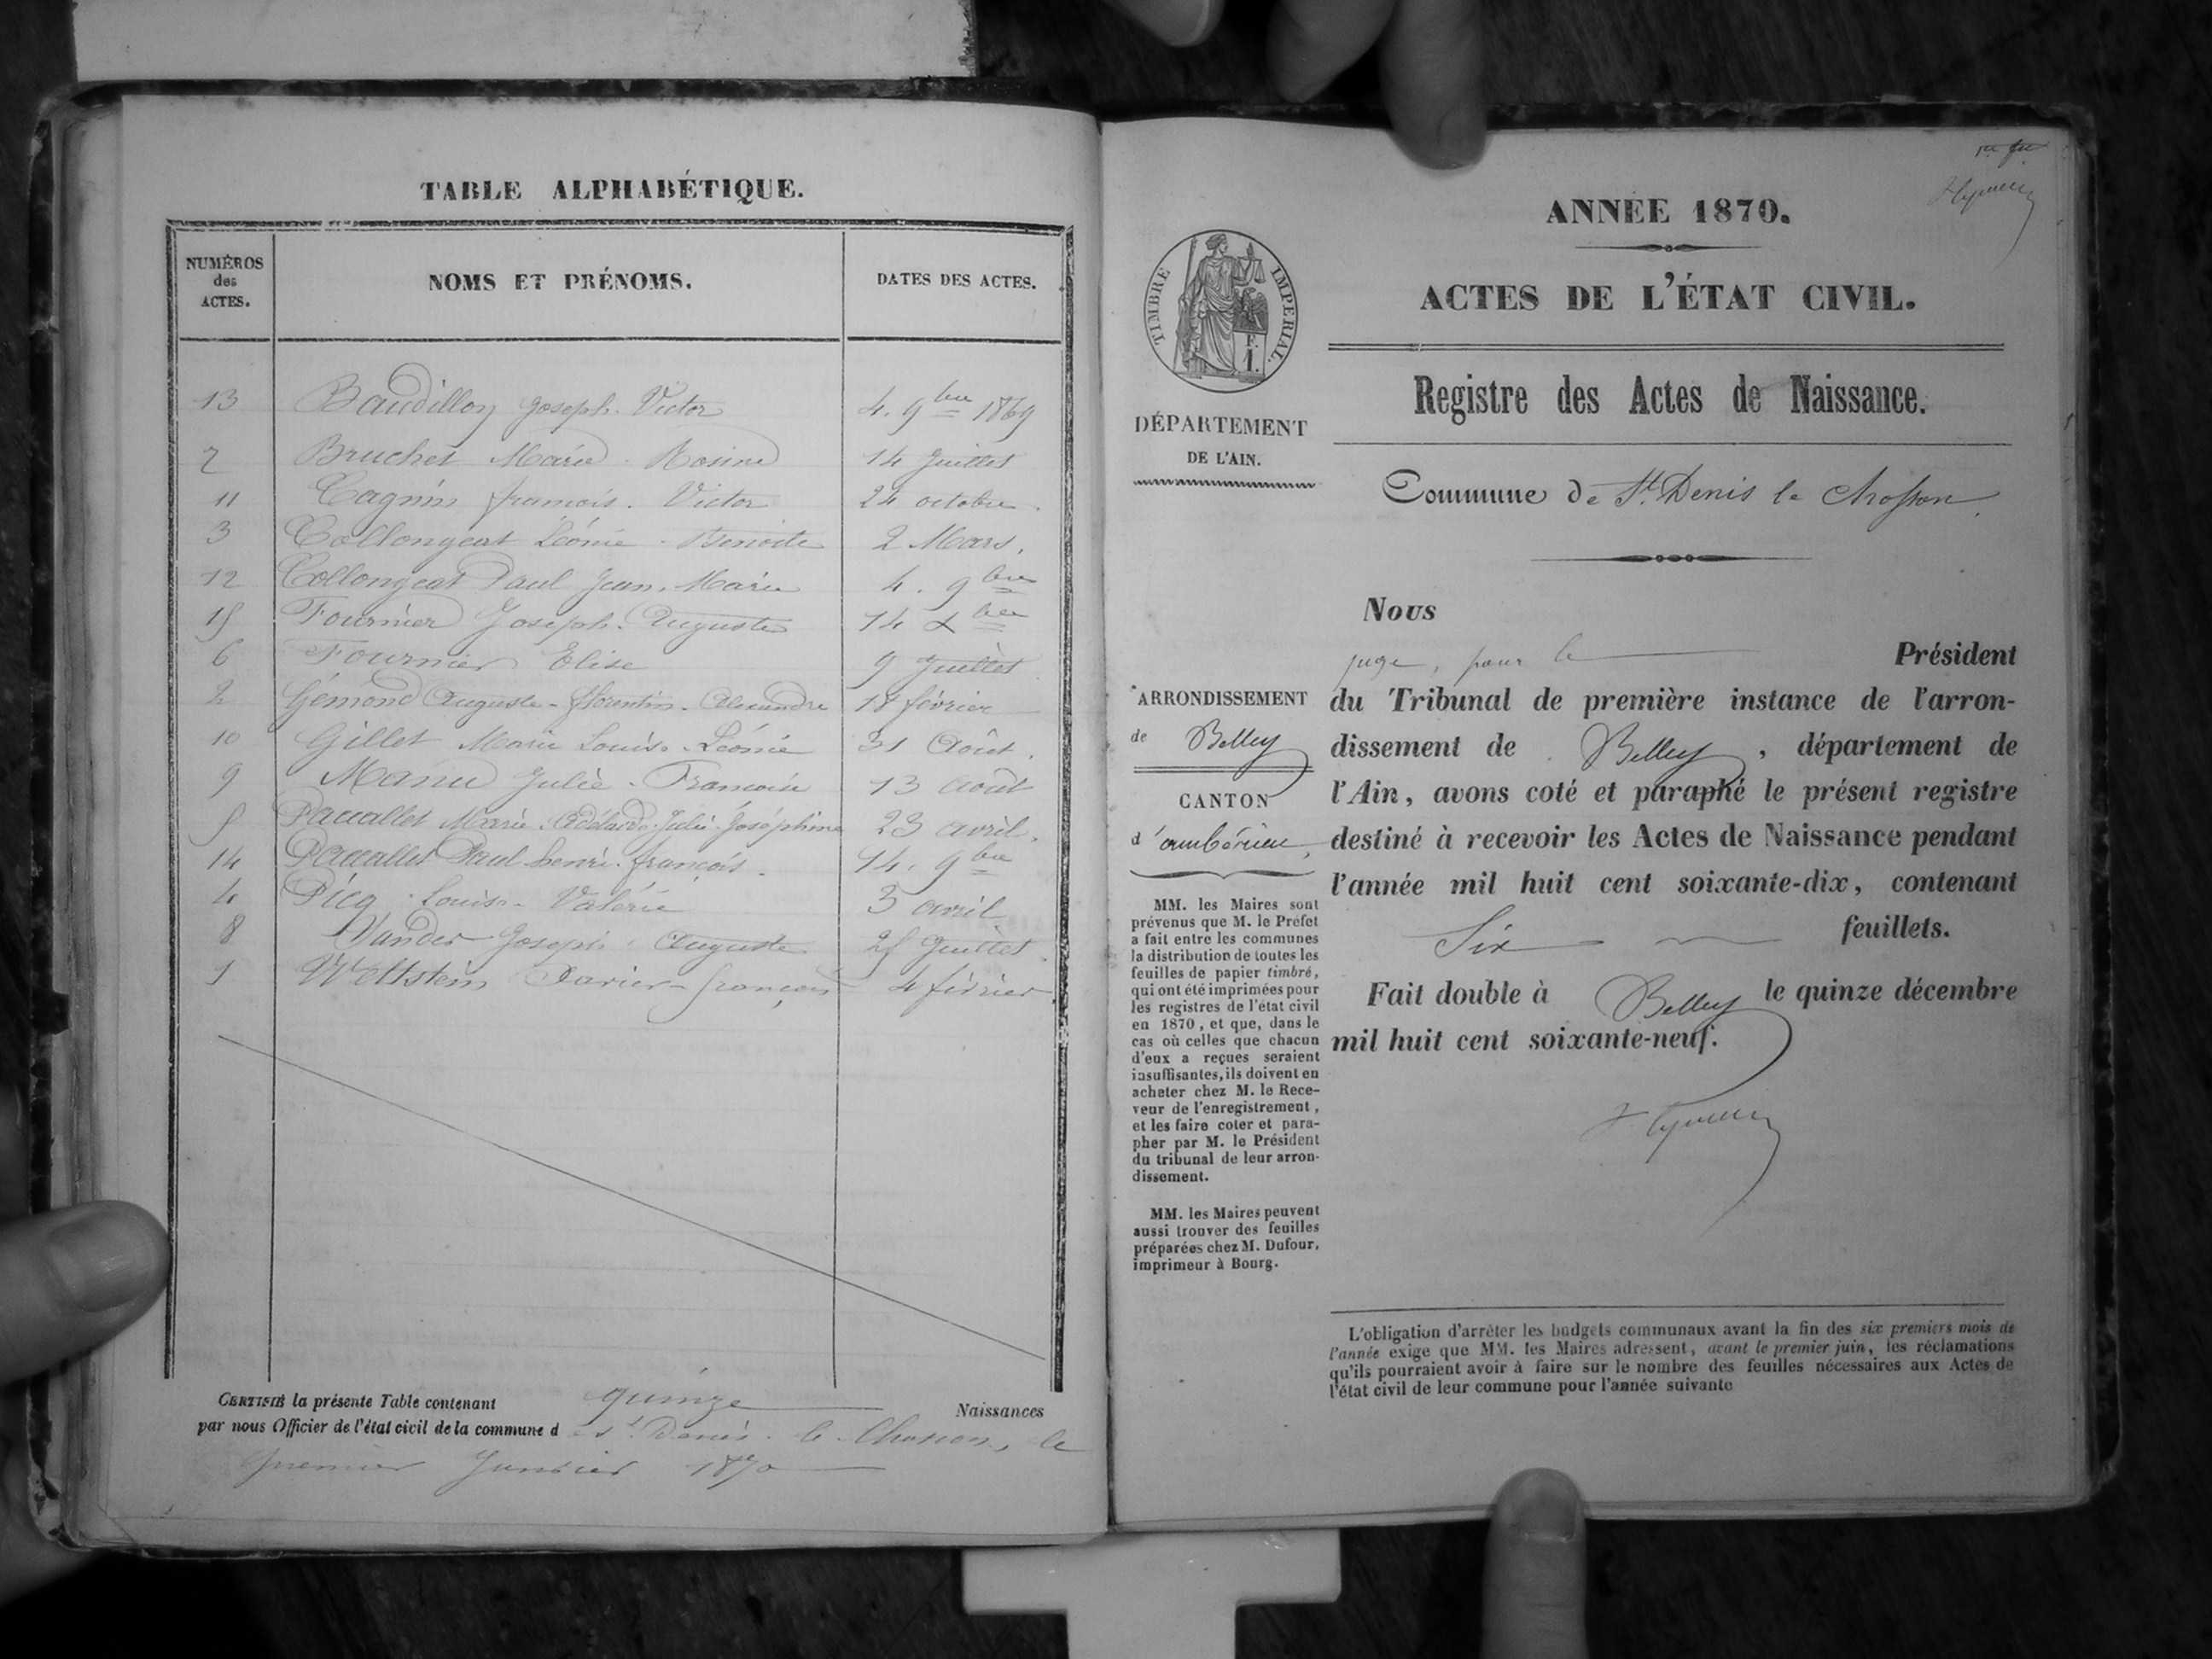 TABLE ALPHABÉTIQUE.
NUMÉROS
des
ACTES.
NOMS ET PRÉNOMS.
DATES DES ACTES.
13 Baudillon Joseph. Victor 4. 9bre 1869
7 Bruchet Marie. Rosine 14 Juillet
11 Cagnin françois. Victor 24 octobre.
3 Collongeat Léonie. Benoite 2 Mars.
12 Collongeat Paul Jean. Marie 4. 9bre
15 Fournier Joseph. Auguste 14 Xbre
6 Fournier Elise 9 Juillet
2 Gémond Auguste-florentin-Alexandre 18 février
10 Gillet Marie Louise-Léonie 31 Août.
9 Julie. Françoise 13 août
5 Paccallet Marie. Adélaïde. Julie. Joséphine 23 avril.
14 Paccallet Paul henri. françois. 14. 9bre
4 Picq. Louise-Valérie 3 avril
8 Vander Joseph. Auguste 25 Juillet
1 Wettstein Xavier-françois 4 février
CERTIFIÉ la présente Table contenant quinze Naissances
par nous Officier de l'état civil de la commune de St. Denis. le. Chosson, le
premier Janvier 1870
1er fet
ANNÉE 1870.
TIMBRE IMPERIAL.
ACTES DE L'ÉTAT CIVIL.
Registre des Actes de Naissance.
DÉPARTEMENT
DE L'AIN.
Commune de St. Denis le Chosson.
ARRONDISSEMENT
de Belley
CANTON
d'ambérieu,
MM. les Maires sont
prévenus que M. le Préfet
a fait entre les communes
la distribution de toutes les
feuilles de papier timbré,
qui ont été imprimées pour
les registres de l'état civil
en 1870, et que, dans le
cas où celles que chacun
d'eux a reçues seraient
insuffisantes, ils doivent en
acheter chez M. le Rece-
veur de l'enregistrement,
et les faire coter et para-
pher par M. le Président
du tribunal de leur arron-
dissement.
MM. les Maires peuvent
aussi trouver des feuilles
préparées chez M. Dufour,
imprimeur à Bourg.
Nous
juge, pour le Président
du Tribunal de première instance de l'arron-
dissement de Belley, département de
l'Ain, avons coté et paraphé le présent registre
destiné à recevoir les Actes de Naissance pendant
l'année mil huit cent soixante-dix, contenant
Six feuillets.
Fait double à Belley le quinze décembre
mil huit cent soixante-neuf.
L'obligation d'arrêter les budgets communaux avant la fin des six premiers mois de
l'année exige que MM. les Maires adressent, avant le premier juin, les réclamations
qu'ils pourraient avoir à faire sur le nombre des feuilles nécessaires aux Actes de
l'état civil de leur commune pour l'année suivante